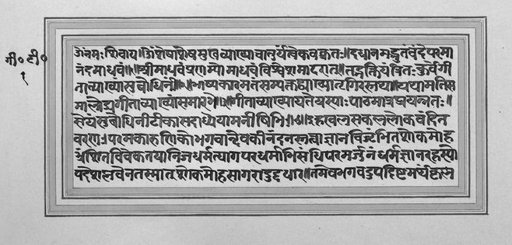 गी० टी०
१
ॐनमः शिवाय॥ शेषाशेषमुखव्याख्याचातुर्यंत्वेकवक्त्रतः॥ दधानमद्भुतंवंदेपरमा
नंदमाधवं॥ श्रीमाधवंप्रणम्योमाधवंविश्वेशमादरात्॥ तद्भक्तियंत्रितःकुर्वेगी
ताव्याख्यांसुबोधिनीं॥ भाष्यकारमतंसम्यक्तद्व्याख्यातुर्गिरस्तथा॥ यथामतिस
मालोच्यगीताव्याख्यांसमारभे॥ गीताव्याख्यायतेयस्याःपाठमात्रप्रयत्नतः॥
सेयंसुबोधिनीटीकासदाध्येयामनीषिभिः॥ इहखलुसकललोकवंदित
चरणःपरमकारुणिकोभगवान्देवकीनंदनस्तत्त्वाज्ञानविजृंभितशोकमोह
भ्रंशितविवेकतयानिजधर्मत्यागपरधर्माभिसंधिपरमर्जुनंधर्मज्ञानरहस्यो
पदेशप्लवेनतस्माच्छोकमोहसागरादुद्दधार॥ तमेवभगवदुपदिष्टमर्थंकृष्ण